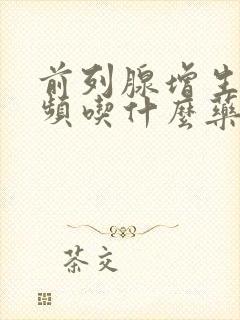 前列腺增生
頻喫什麼藥
茶文